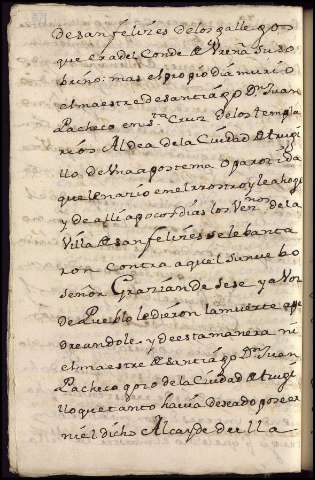 de san feliçes de los gallegos
que era del Conde de Vreña su so
brino: mas el propio dia murio
el maestre de santiago Dn Juan
Pacheco en sta Cruz de los templa
rios Aldea de la Ciudad de trugi
llo de Vna apostema o parotida
que le nacio en el rrostro y le ahogo
y de alli a pocos dias los Veznos de la
Villa de san feliçes se lebanta
ron contra aquel su nuebo
señor Graçian de Sese y a Voz
de Pueblo le dieron la muerte ape
dreandole. y de esta manera ni
el maestre de santiago Dn Juan
Pacheco goço de la Ciudad de trugi
llo que tanto havia deseado poseer
ni el dicho Alcayde de ella